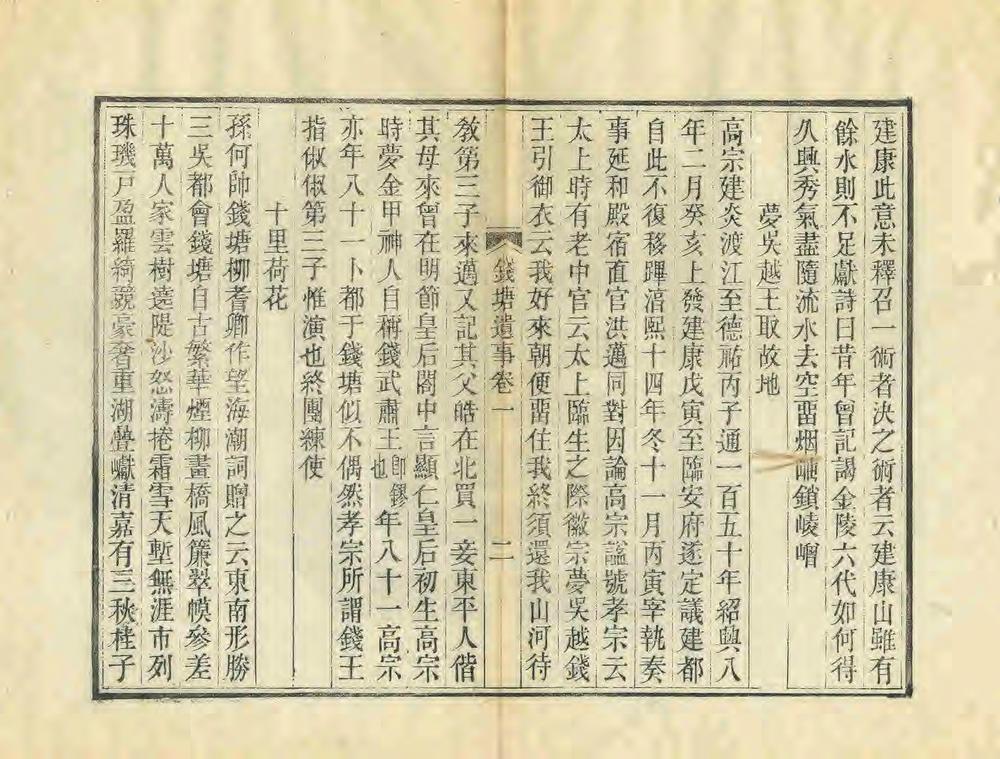 建康此意未釋召一術者決之術者云建康山雖有
餘水則不足獻詩曰昔年曾記謁金陵六代如何得
久興秀氣盡隨流水去空畱烟岫鎖崚嶒
夢吳越王取故地
高宗建炎渡江至德祐丙子通一百五十年紹興八
年二月癸亥上發建康戊寅至臨安府遂定議建都
自此不復移蹕湻熙十四年冬十一月丙寅宰執奏
事延和殿宿直官洪邁同對因論高宗諡號孝宗云
太上時有老中官云太上臨生之際徽宗夢吳越錢
王引御衣云我好來朝便畱住我終須還我山河待
錢塘遺事卷一 二
敎第三子來邁又記其父皓在北買一妾東平人偕
其母來曾在明節皇后閤中言顯仁皇后初生高宗
時夢金甲神人自稱錢武肅王卽鏐也年八十一高宗
亦年八十一卜都于錢塘似不偶然孝宗所謂錢王
指俶俶第三子惟演也終團練使
十里荷花
孫何帥錢塘柳耆卿作望海潮詞贈之云東南形勝
三吳都會錢塘自古繁華煙柳畫橋風簾翠幙參差
十萬人家雲樹遶隄沙怒濤捲霜雪天塹無涯市列
珠璣戸盈羅綺競豪奢重湖疊巘淸嘉有三秋桂子